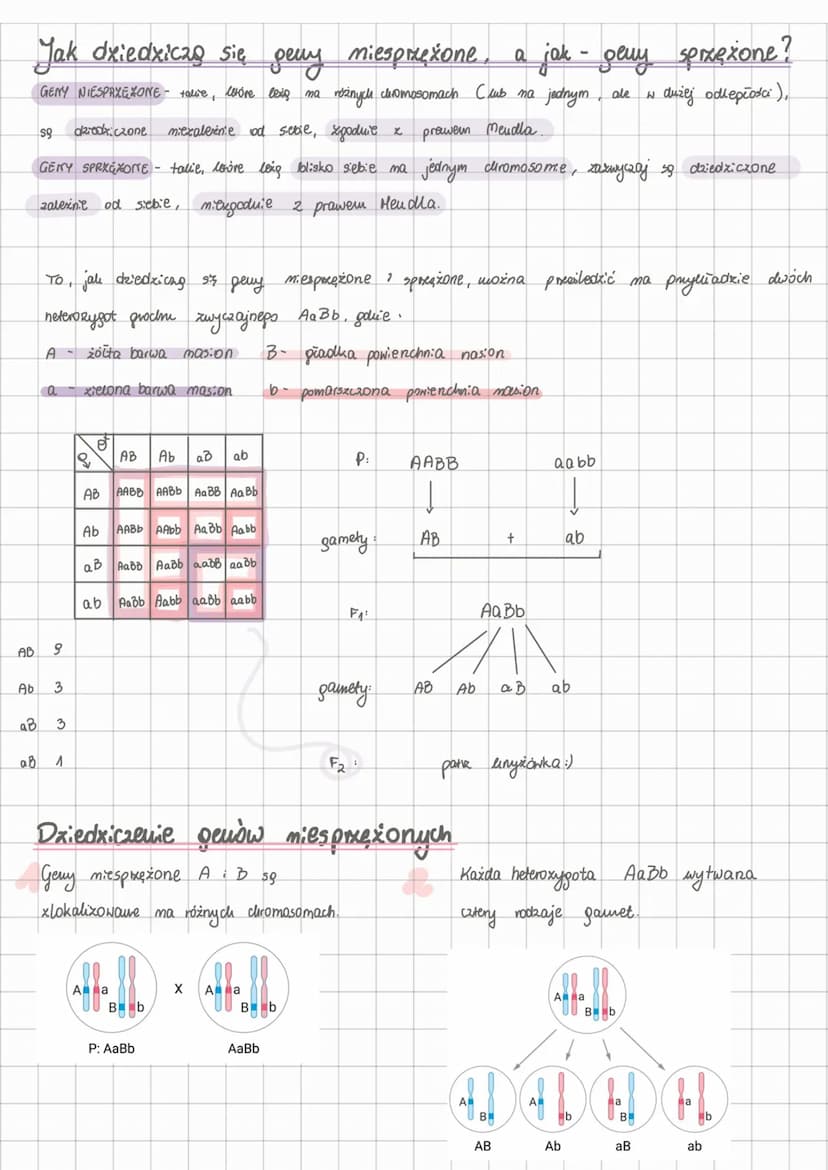 Jak dziedziczą się geny niesprzężone, a jak - geny sprzężone?
GENY NIESPRZĘŻONE - takie, które leżą na różnych chromosomach (lub na jednym, ale w dużej odległości),
są dziedziczone niezależnie od siebie, zgodnie z prawem Mendla.
GENY SPRZĘŻONE - takie, które leżą blisko siebie na jednym chromosomie, zazwyczaj są dziedziczone
zależnie od siebie, niezgodnie z prawem Mendla.
To, jak dziedziczą się geny niesprzężone i sprzężone, można prześledzić na przykładzie dwóch
heterozygot grochu zwyczajnego AaBb, gdzie:
A - żółta barwa nasion B - gładka powierzchnia nasion
a - zielona barwa nasion b - pomarszczona powierzchnia nasion
♀ ♂ AB Ab aB ab
AB AABB AABb AaBB AaBb
Ab AABb AAbb AaBb Aabb
aB AaBB AaBb aaBB aaBb
ab AaBb Aabb aaBb aabb
P: AABB aabb
gamety: AB + ab
F1: AaBb
gamety: AB Ab aB ab
F2: patrz krzyżówka :)
AB 9
Ab 3
aB 3
aB 1
Dziedziczenie genów niesprzężonych
1 Geny niesprzężone A i B są
zlokalizowane na różnych chromosomach.
A a B b x A a B b
P: AaBb AaBb
2 Każda heterozygota AaBb wytwarza
cztery rodzaje gamet.
A a B b
A B A b a B a b
AB Ab aB ab